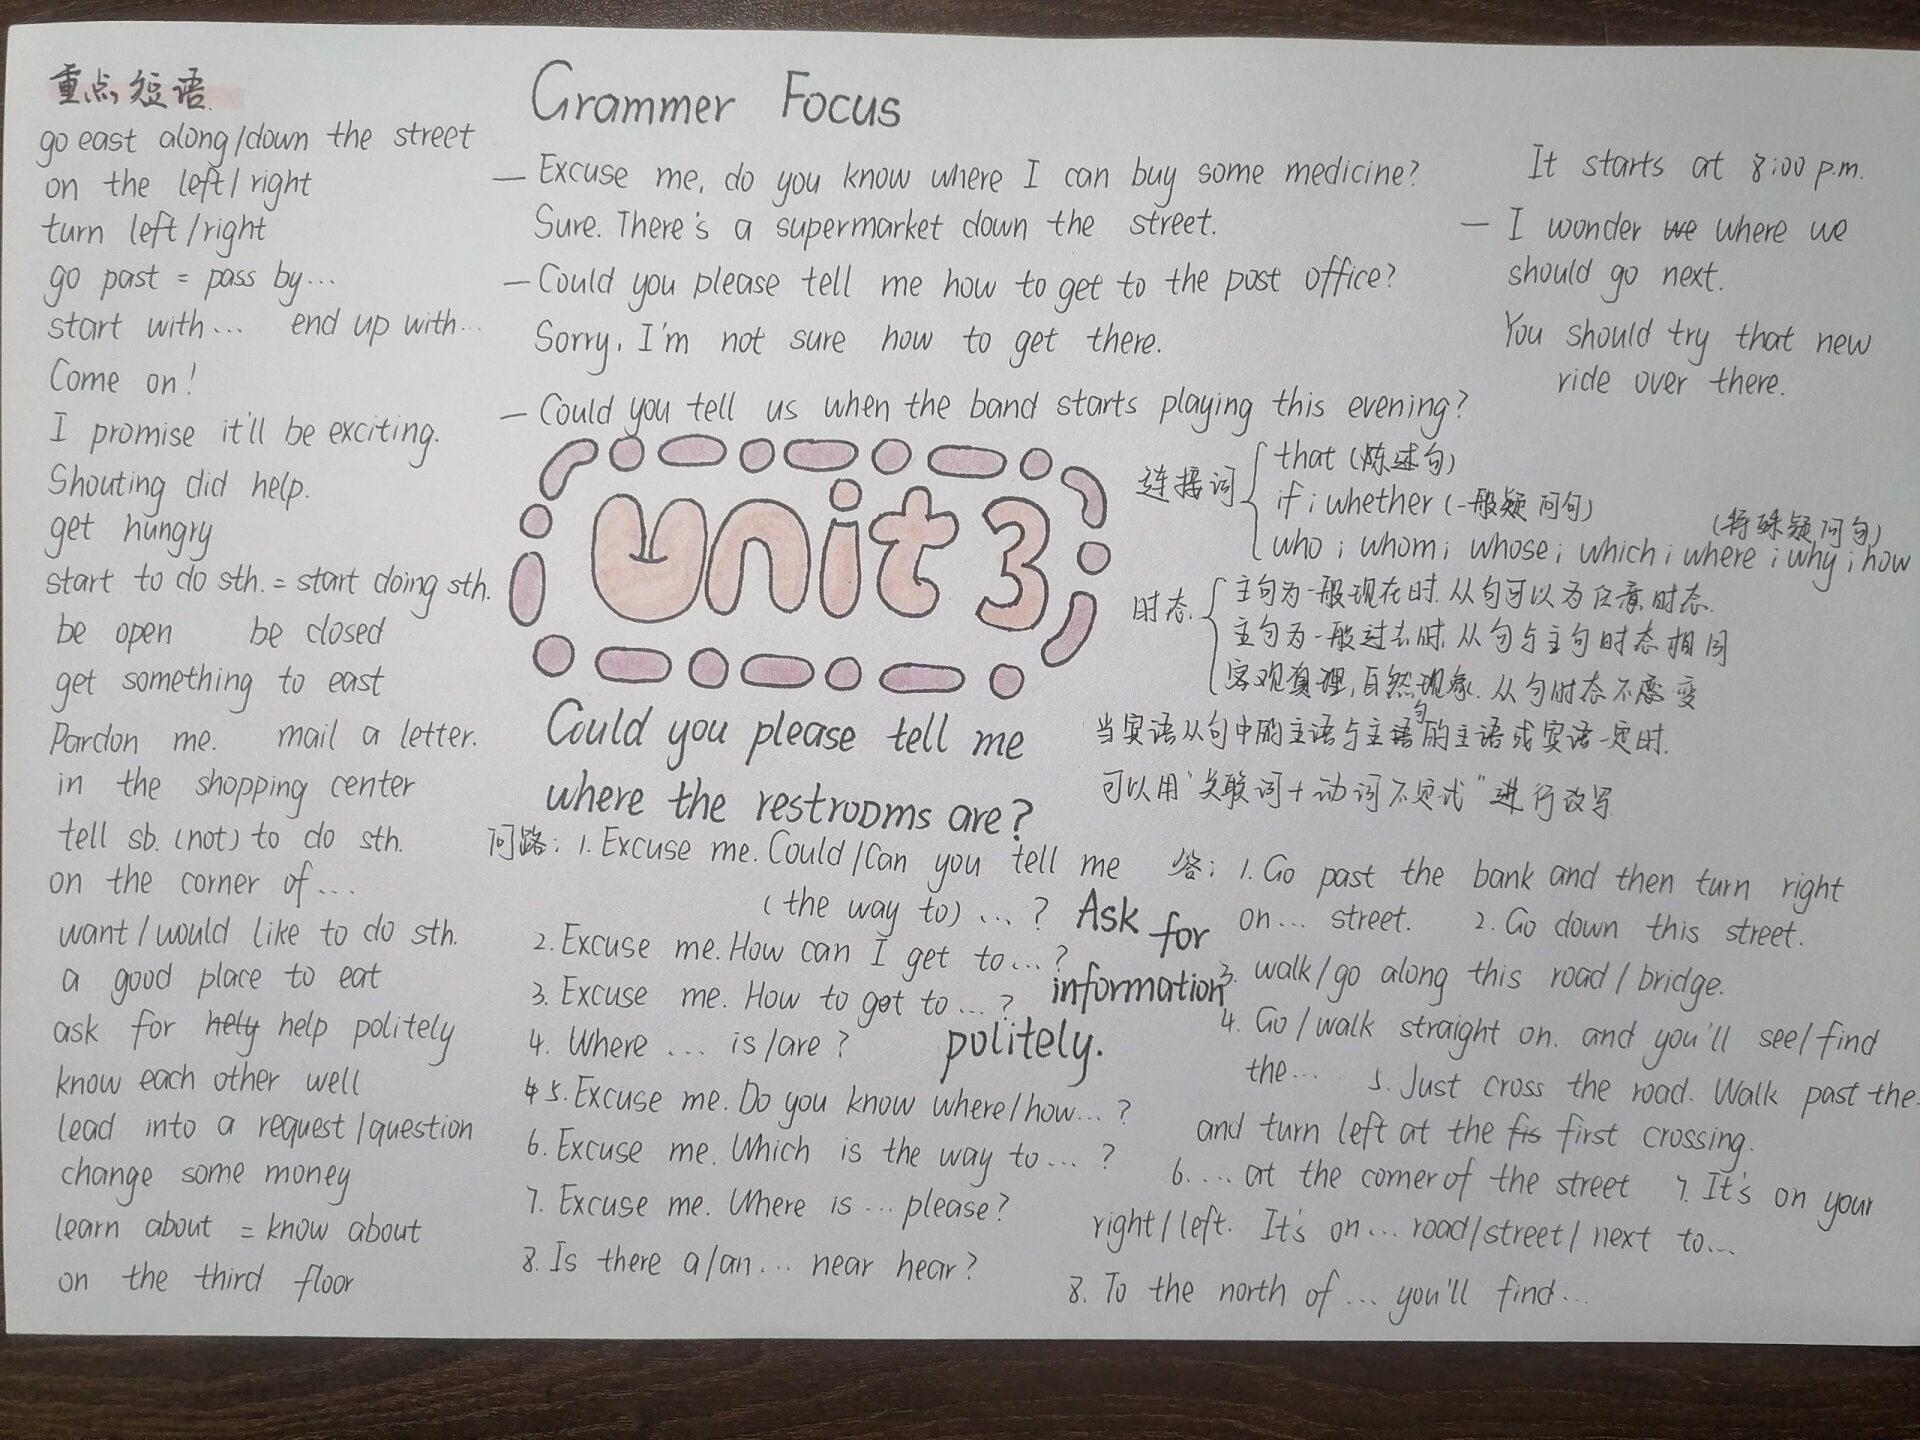 重点短语
go east along/down the street
on the left/right
turn left/right
go past = pass by...
start with... end up with...
Come on!
I promise it'll be exciting.
Shouting did help.
get hungry
start to do sth. = start doing sth.
be open be closed
get something to east
Pardon me. mail a letter.
in the shopping center
tell sb. (not) to do sth.
on the corner of...
want/would like to do sth.
a good place to eat
ask for hely help politely
know each other well
lead into a request/question
change some money
learn about = know about
on the third floor
Grammer Focus
— Excuse me, do you know where I can buy some medicine?
Sure. There's a supermarket down the street.
— Could you please tell me how to get to the post office?
Sorry, I'm not sure how to get there.
— Could you tell us when the band starts playing this evening?
It starts at 8:00 p.m.
— I wonder we where we
should go next.
You should try that new
ride over there.
unit 3
Could you please tell me
where the restrooms are?
连接词
that (陈述句)
if; whether (一般疑问句)
(特殊疑问句)
who; whom; whose; which; where; why; how
时态
主句为一般现在时.从句可以为任意时态.
主句为一般过去时,从句与主句时态相同
客观真理,自然现象.从句时态不变
当宾语从句中的主语与主句的主语或宾语一定时.
可以用"关联词+动词不定式"进行改写
问路: 1. Excuse me. Could/Can you tell me
(the way to)...?
2. Excuse me. How can I get to...?
3. Excuse me. How to get to...?
4. Where ... is/are?
4 5. Excuse me. Do you know where/how...?
6. Excuse me. Which is the way to...?
7. Excuse me. Where is ... please?
8. Is there a/an... near hear?
Ask for
information
politely.
答: 1. Go past the bank and then turn right
on... street. 2. Go down this street.
3. walk/go along this road/bridge.
4. Go/walk straight on. and you'll see/find
the... 5. Just cross the road. Walk past the.
and turn left at the fis first crossing.
6. ... at the corner of the street 7. It's on your
right/left. It's on... road/street/next to...
8. To the north of... you'll find...